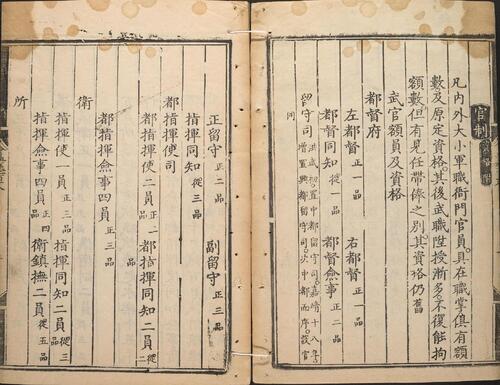 官制
凡內外大小軍職衙門官員具在職掌俱有額
數及原定資格其後武職陞授漸多不復能拘
額數但有見任帶俸之別其資格仍舊
武官額員及資格
都督府
左都督正一品 右都督正一品
都督同知從一品 都督僉事正二品
留守司洪武初置中都留守司嘉靖十八年
增置興都留守司以中都而序設官
同
正留守正二品 副留守正三品
指揮同知從三品
都指揮使司
都指揮使一員正二品 都指揮同知二員從二品
都指揮僉事四員正三品
衛
指揮使一員正三品 指揮同知二員從三品
指揮僉事四員正四品 衛鎮撫二員從五品
所